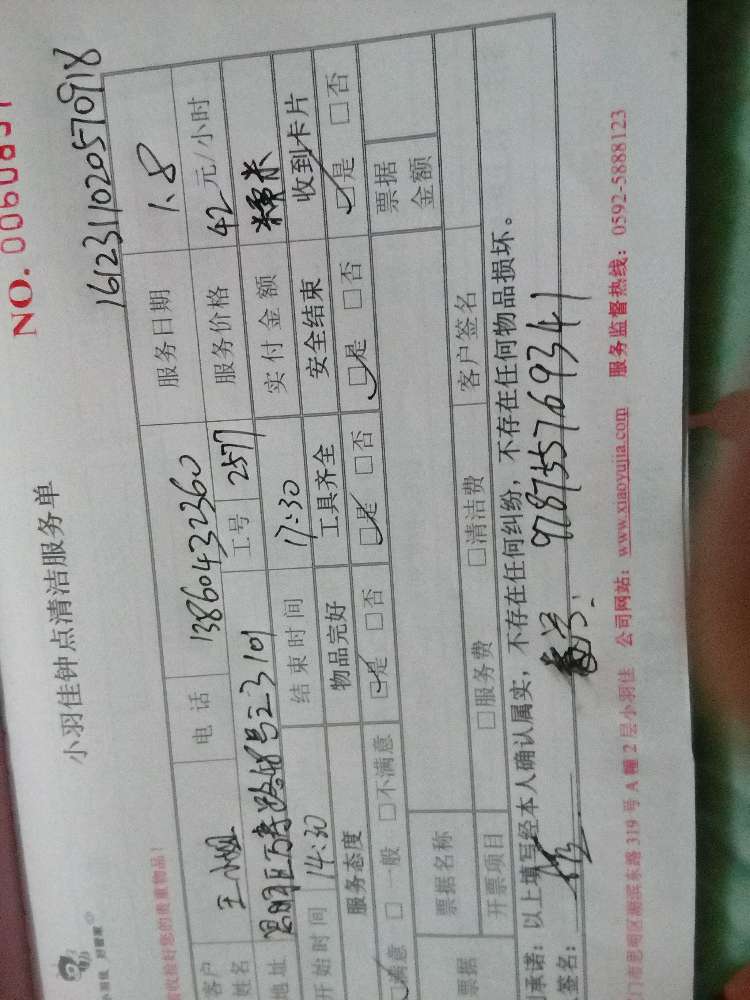 NO. 0060831
小羽佳 好管家
小羽佳钟点清洁服务单
1612311020570918
请收捡好您的贵重物品！
客户姓名 王小姐 电话 13860432360 服务日期 1.8
地址 工号 2577 服务价格 42元/小时
开始时间 14:30 结束时间 17:30 实付金额
服务态度 物品完好 工具齐全 安全结束 收到卡片
满意 □一般 □不满意 □是 □否 □是 □否 □是 □否 □是 □否
票据 票据名称 票据金额
开票项目 □服务费 □清洁费 客户签名
承诺：以上填写经本人确认属实，不存在任何纠纷，不存在任何物品损坏。
签名： 978755769341
门市思明区湖滨东路319号A幢2层小羽佳 公司网站：www.xiaoyujia.com 服务监督热线：0592-5888123